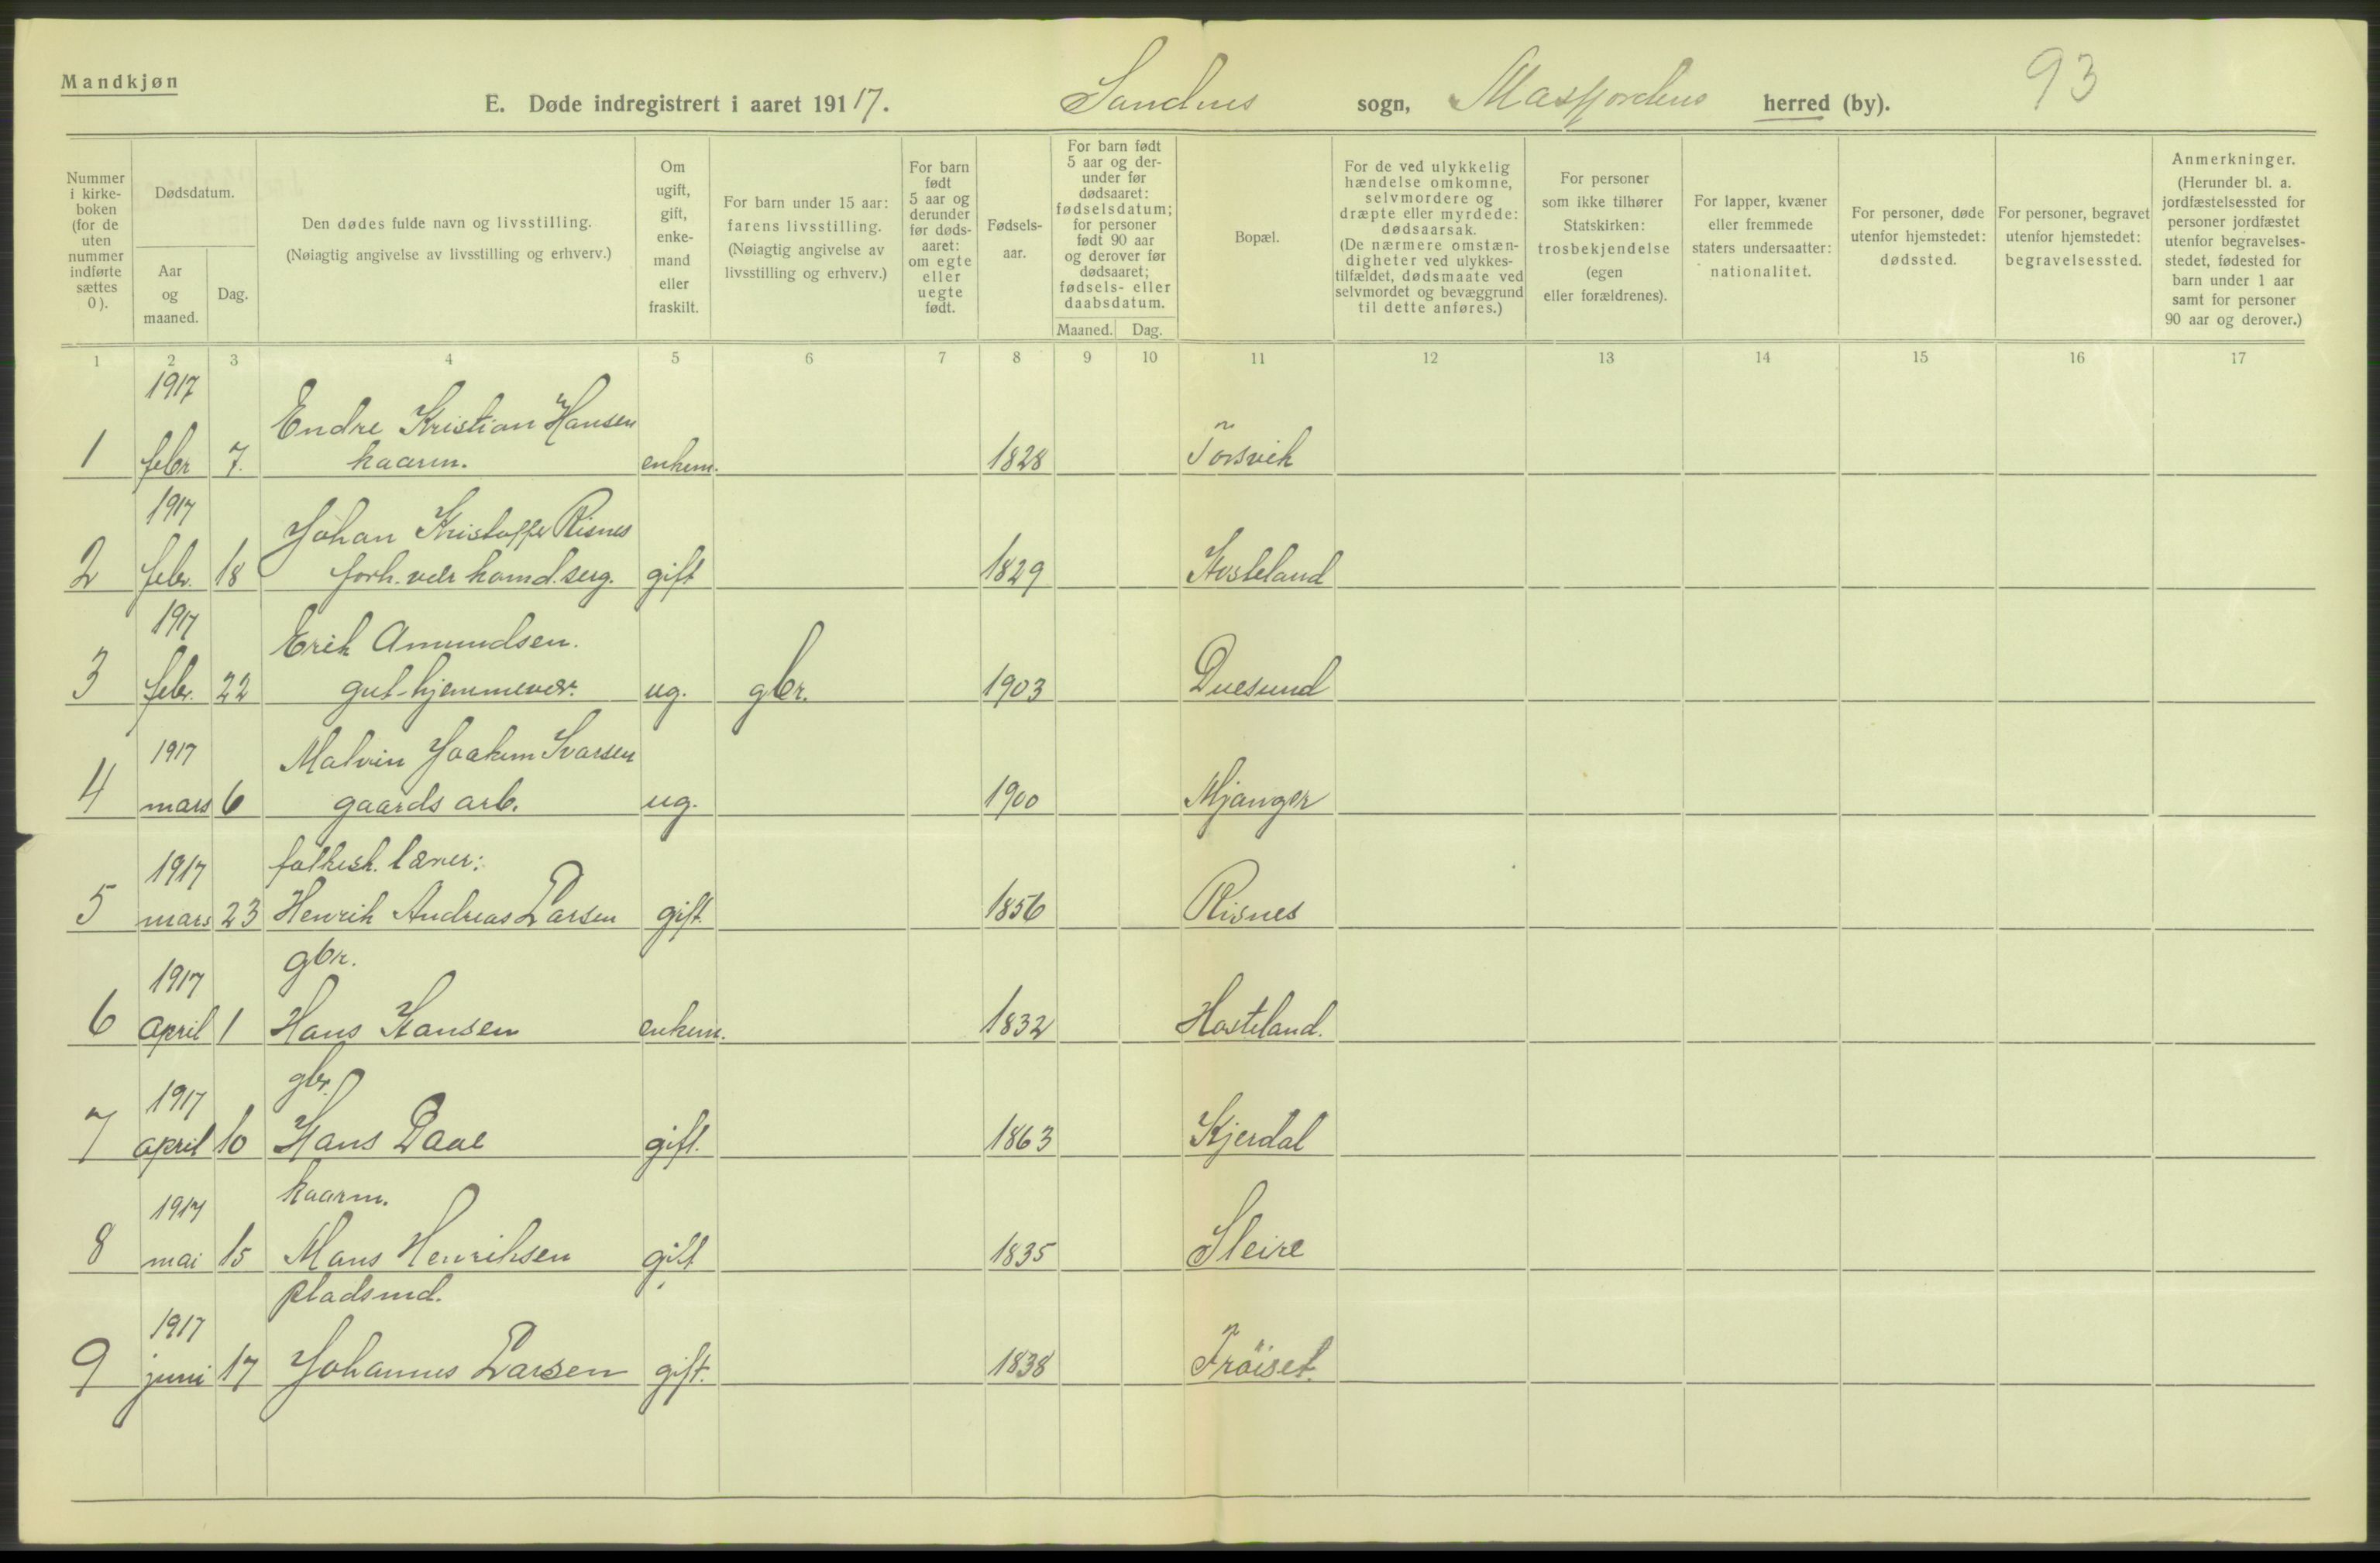 Mandkjøn
E. Døde indregistrert i aaret 19117. Sandnes sogn, Masfjordens herred (by). 93
Nummer i kirke-boken (for de uten nummer indførte sættes 0).
Dødsdatum.
Aar og maaned.
Dag.
Den dødes fulde navn og livsstilling.
(Nøiagtig angivelse av livsstilling og erhverv.)
Om ugift, gift, enke-mand eller fraskilt.
For barn under 15 aar: farens livsstilling. (Nøiagtig angivelse av livsstilling og erhverv.)
For barn født 5 aar og derunder før døds-aaret: om egte eller uegte født.
Fødsels-aar.
For barn født 5 aar og der-under før dødsaaret: fødselsdatum; for personer født 90 aar og derover før dødsaaret; fødsels- eller daabsdatum.
Maaned. Dag.
Bopæl.
For de ved ulykkelig hændelse omkomne, selvmordere og dræpte eller myrdede: dødsaarsak. (De nærmere omstæn-digheter ved ulykkes-tilfældet, dødsmaate ved selvmordet og bevæggrund til dette anføres.)
For personer som ikke tilhører Statskirken: trosbekjendelse (egen eller forældrenes).
For lapper, kvæner eller fremmede staters undersaatter: nationalitet.
For personer, døde utenfor hjemstedet: dødssted.
For personer, begravet utenfor hjemstedet: begravelsessted.
Anmerkninger. (Herunder bl. a. jordfæstelsessted for personer jordfæstet utenfor begravelses-stedet, fødested for barn under 1 aar samt for personer 90 aar og derover.)
1 2 3 4 5 6 7 8 9 10 11 12 13 14 15 16 17
1917 Endre Kristian Hansen
1 febr 7. kaarm. enkem. 1828 Torsvik
1917 Johan Kristoffer Risnes
2 febr. 18 forh. vær komd. serg. gift 1829 Hosteland
1917 Erik Amundsen.
3 febr. 22 gut-hjemmevær. ug. gbr. 1903 Duesund
1917 Malvin Joakim Ivarsen
4 mars 6 gaards arb. ug. 1900 Mjanger
1917 folkesk. lærer:
5 mars 23 Henrik Andreas Larsen gift. 1856 Risnes
1917 gbr.
6 april 1 Hans Hansen enkem. 1832 Hosteland.
1917 gbr.
7 april 10 Hans Daae gift. 1863 Kjerdal
1917 kaarm.
8 mai 15 Mons Henriksen gift 1835 Sleire
1917 pladsmd.
9 juni 17 Johannes Larsen gift. 1838 Frøiset.